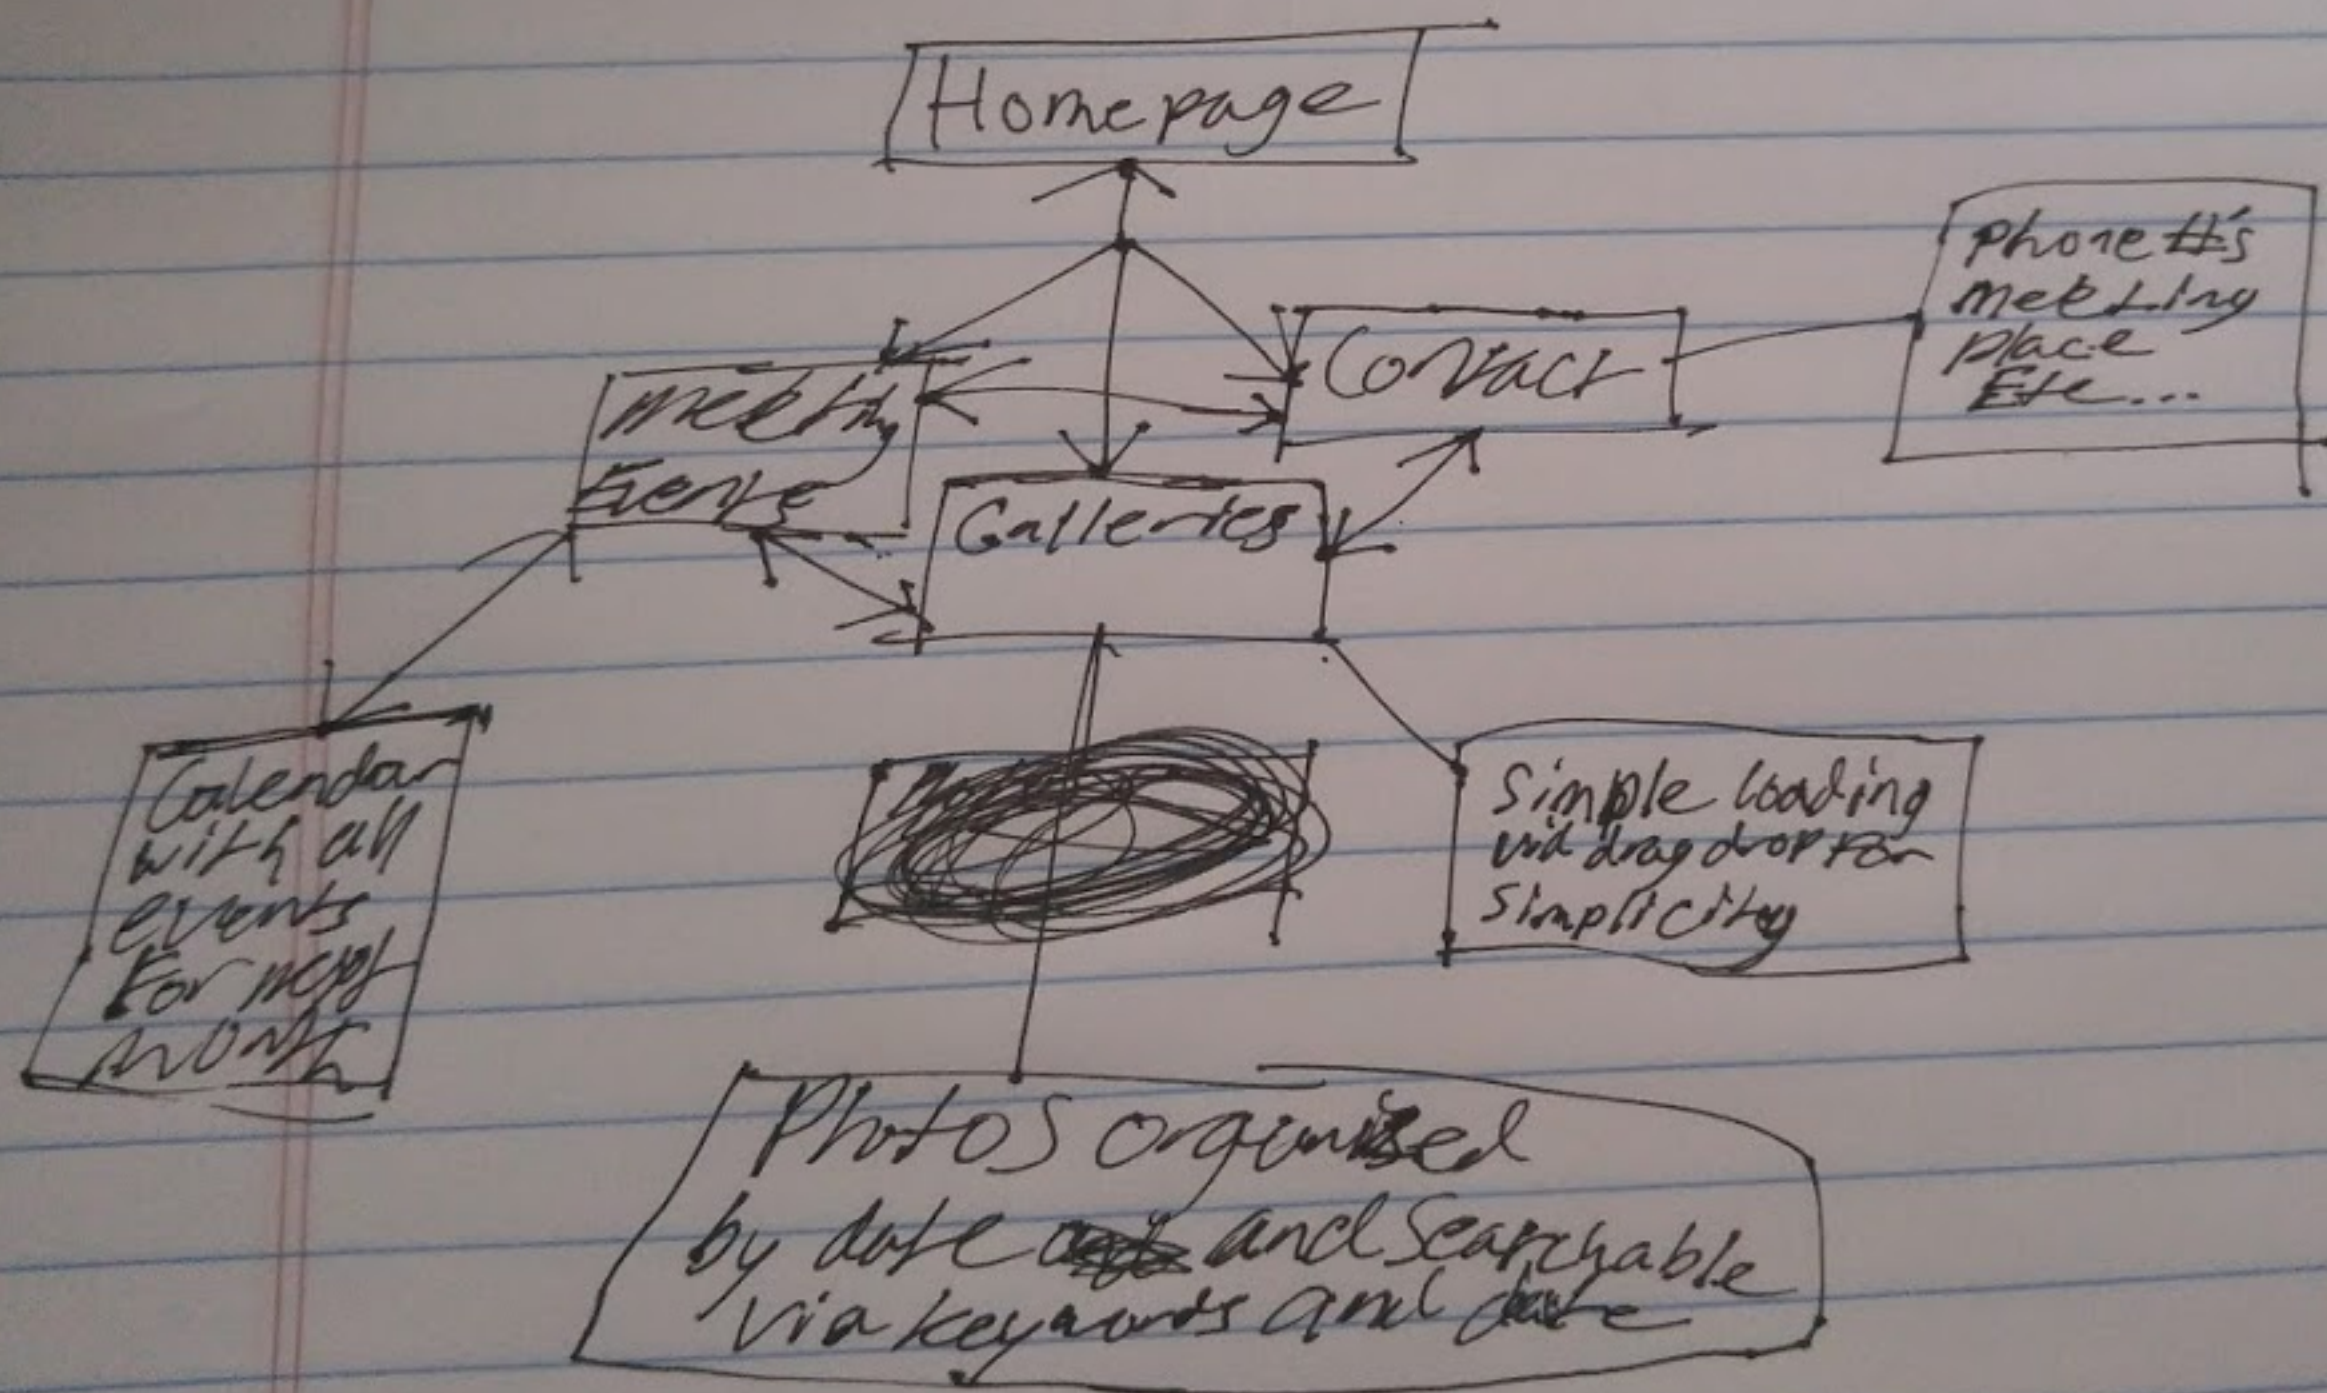 Homepage
Phone #'s
meeting
place
Etc...
Contact
meeting
Events
Galleries
Calendar
with all
events
For next
month
Simple loading
via drag drop for
simplicity
Photos organised
by date and searchable
via keywords and date